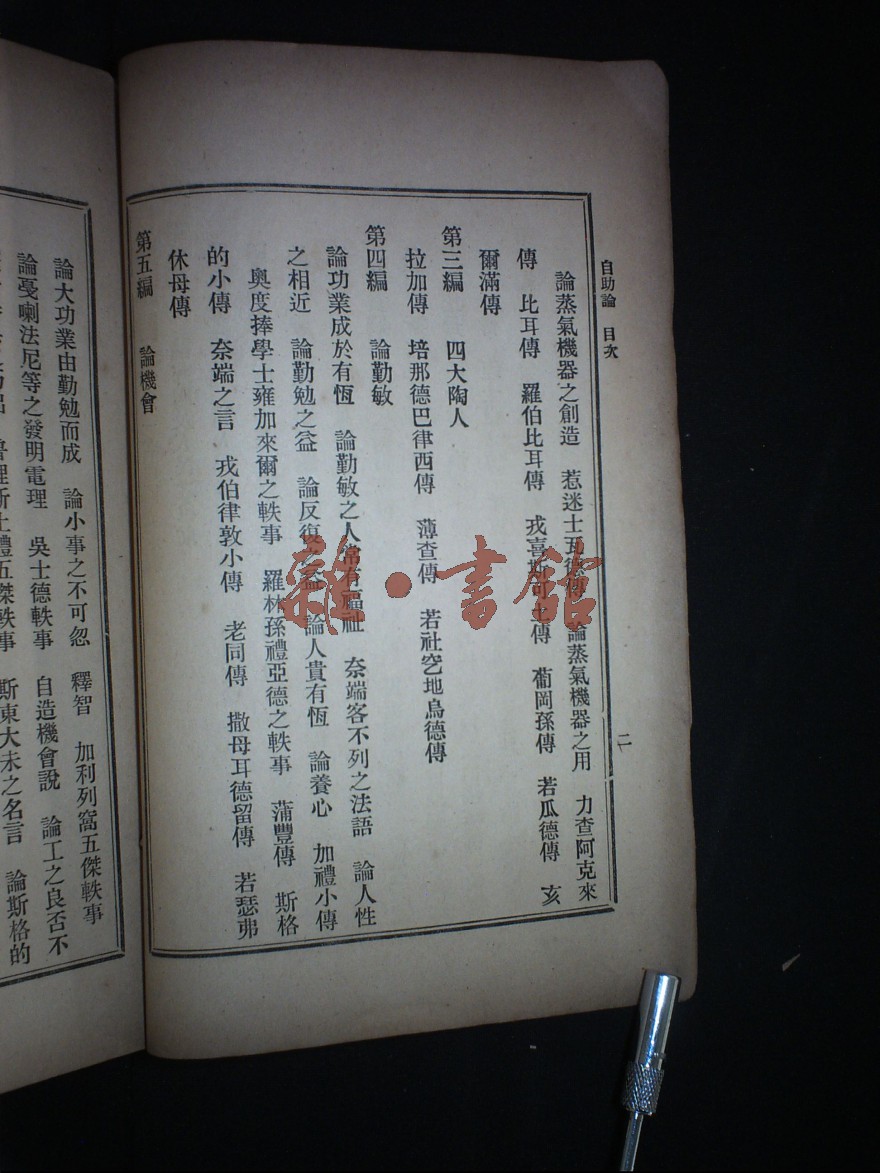 自助論　目次
二
論蒸氣機器之創造　惹迷士瓦德傳　論蒸氣機器之用　力查阿克來
傳　比耳傳　羅伯比耳傳　戎喜斯可士傳　蔔岡孫傳　若瓜德傳　亥
爾滿傳
第三編　四大陶人
拉加傳　培那德巴律西傳　薄查傳　若社空地烏德傳
第四編　論勤敏
論功業成於有恆　論勤敏之人常有福祉　奈端客不列之法語　論人性
之相近　論勤勉之益　論反復之益　論人貴有恆　論養心　加禮小傳
奧度捧學士雍加來爾之軼事　羅林孫禮亞德之軼事　蒲豐傳　斯格
的小傳　奈端之言　戎伯律敦小傳　老同傳　撒母耳德留傳　若瑟弗
休母傳
第五編　論機會
論大功業由勤勉而成　論小事之不可忽　釋智　加利列窩五傑軼事
論戞喇法尼等之發明電理　吳士德軼事　自造機會說　論工之良否不
魯理斯士禮五傑軼事　斯東大未之名言　論斯格的
雜·書館